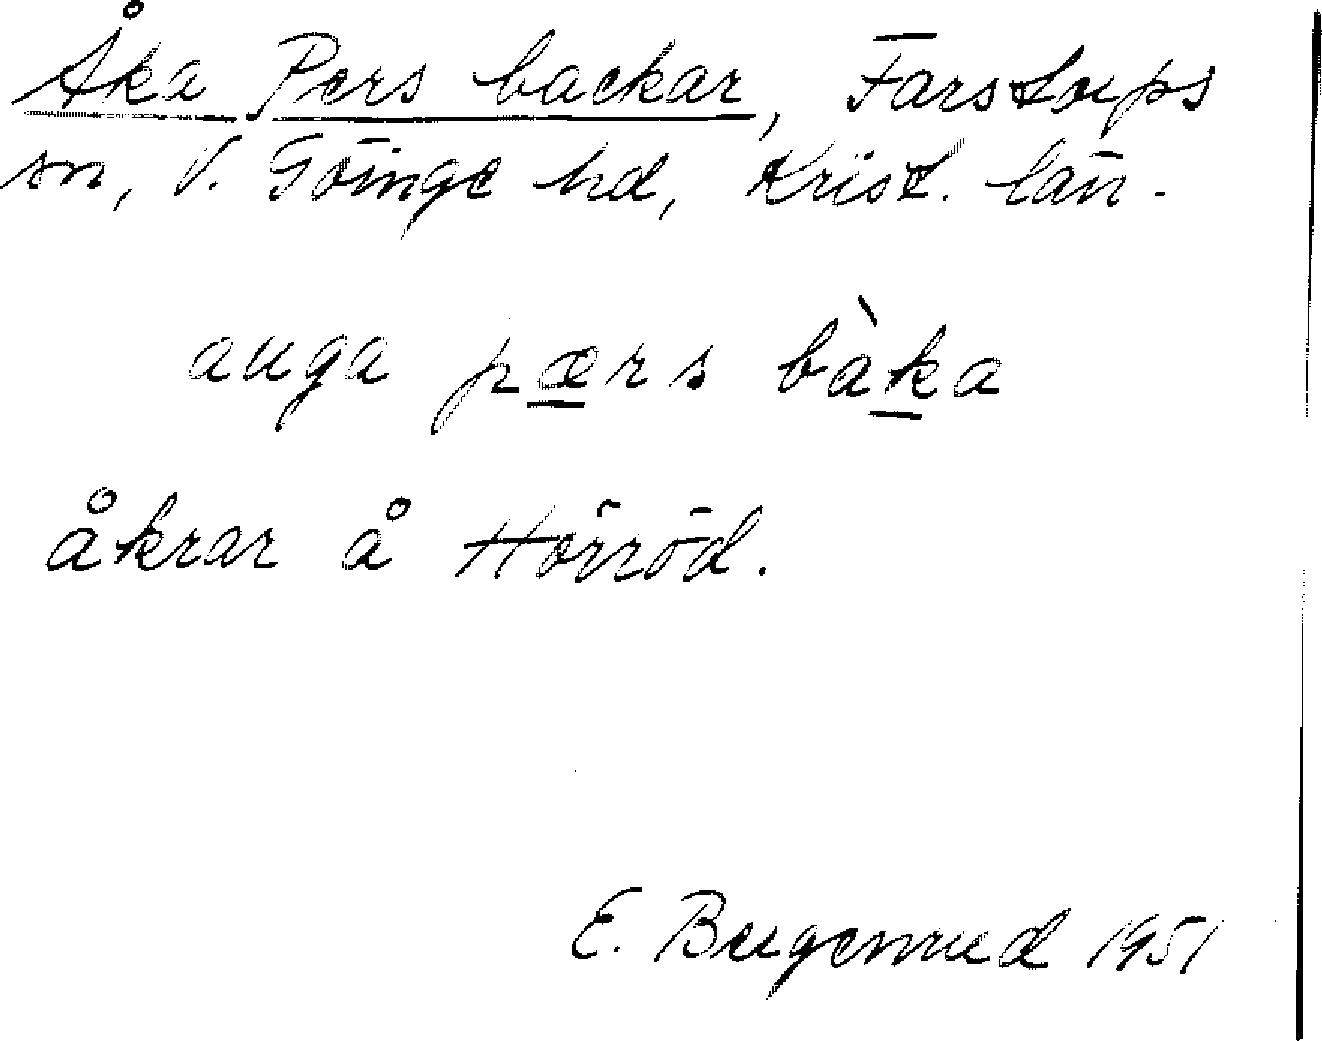 Åka Pers backar, Färstorps
sn, V. Göinge hd, Krist. län.
auga pærs bàka
åkrar å Hörröd.
E. 1951